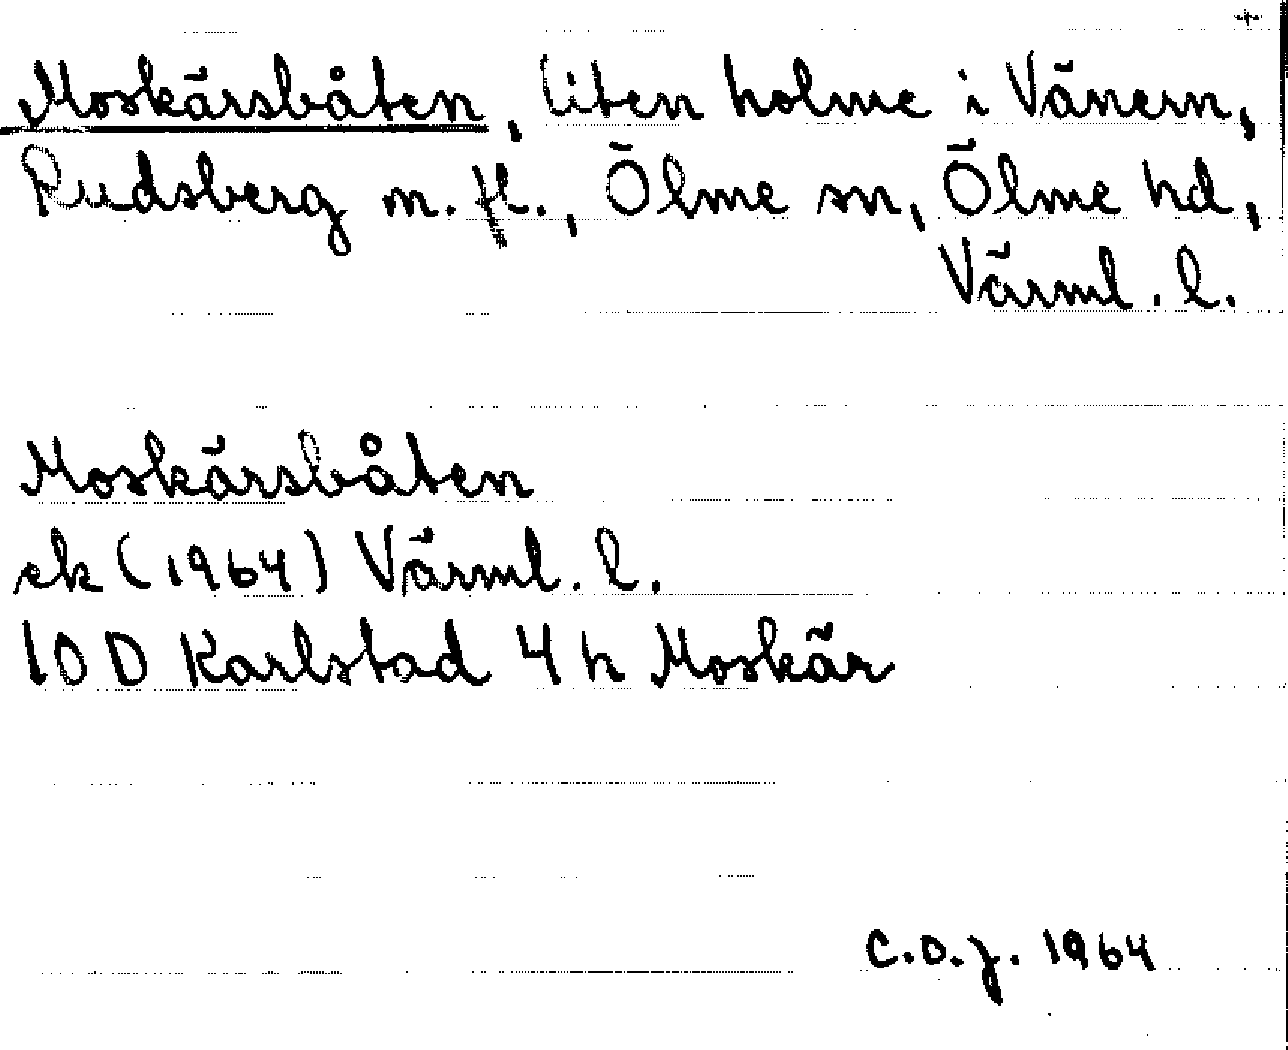 +
Moskärsbåten, liten holme i Vänern,
Rudsberg m. fl., Ölme sn, Ölme hd,
Värml. l.
Moskärsbåten
ek (1964) Värml. l.
10 D Karlstad 4 h Moskär
C.O.J. 1964